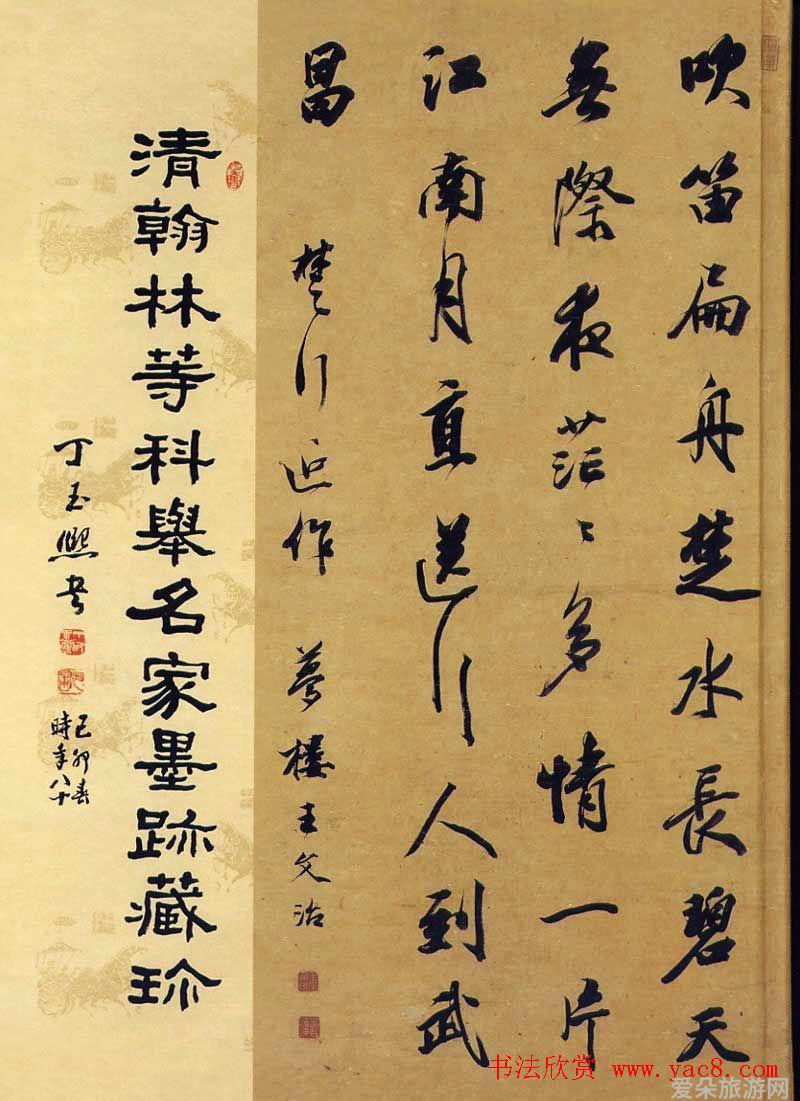 吹笛扁舟楚水長碧天
無際夜茫〻多情一片
江南月直送行人到武
昌 楚行近作 夢樓王文治
清翰林等科舉名家墨跡藏珎
丁玉熙書
己卯春
時年八十
书法欣赏 www.yac8.com
爱朵旅游网